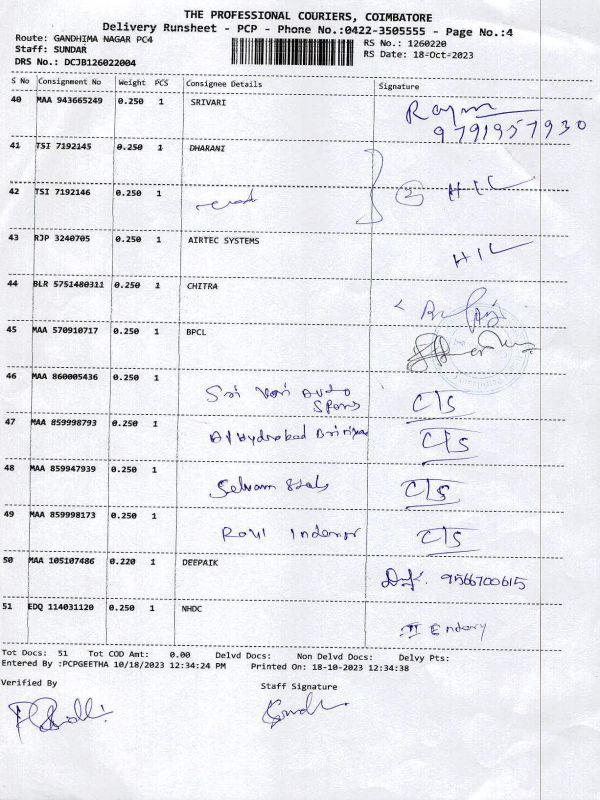 THE PROFESSIONAL COURIERS, COIMBATORE
Delivery Runsheet - PCP - Phone No.:0422-3505555 - Page No.:4
Route: GANDHIMA NAGAR PC4
RS No.: 1260220
Staff: SUNDAR
RS Date: 18-Oct-2023
DRS No.: DCJB126022004
S No Consignment No Weight PCS Consignee Details Signature
40 MAA 943665249 0.250 1 SRIVARI
9791957930
41 TSI 7192145 0.250 1 DHARANI
42 TSI 7192146 0.250 1 2 HIL
43 RJP 3240705 0.250 1 AIRTEC SYSTEMS HIL
44 BLR 5751480311 0.250 1 CHITRA
45 MAA 570910717 0.250 1 BPCL
46 MAA 860005436 0.250 1 Sri Vari Auto C/S
47 MAA 859998793 0.250 1 C/S
48 MAA 859947939 0.250 1 Selvam C/S
49 MAA 859998173 0.250 1 C/S
50 MAA 105107486 0.220 1 DEEPAIK 9566700615
51 EDQ 114031120 0.250 1 NHDC
Tot Docs: 51 Tot COD Amt: 0.00 Delvd Docs: Non Delvd Docs: Delvy Pts:
Entered By :PCPGEETHA 10/18/2023 12:34:24 PM Printed On: 18-10-2023 12:34:38
Verified By
Staff Signature